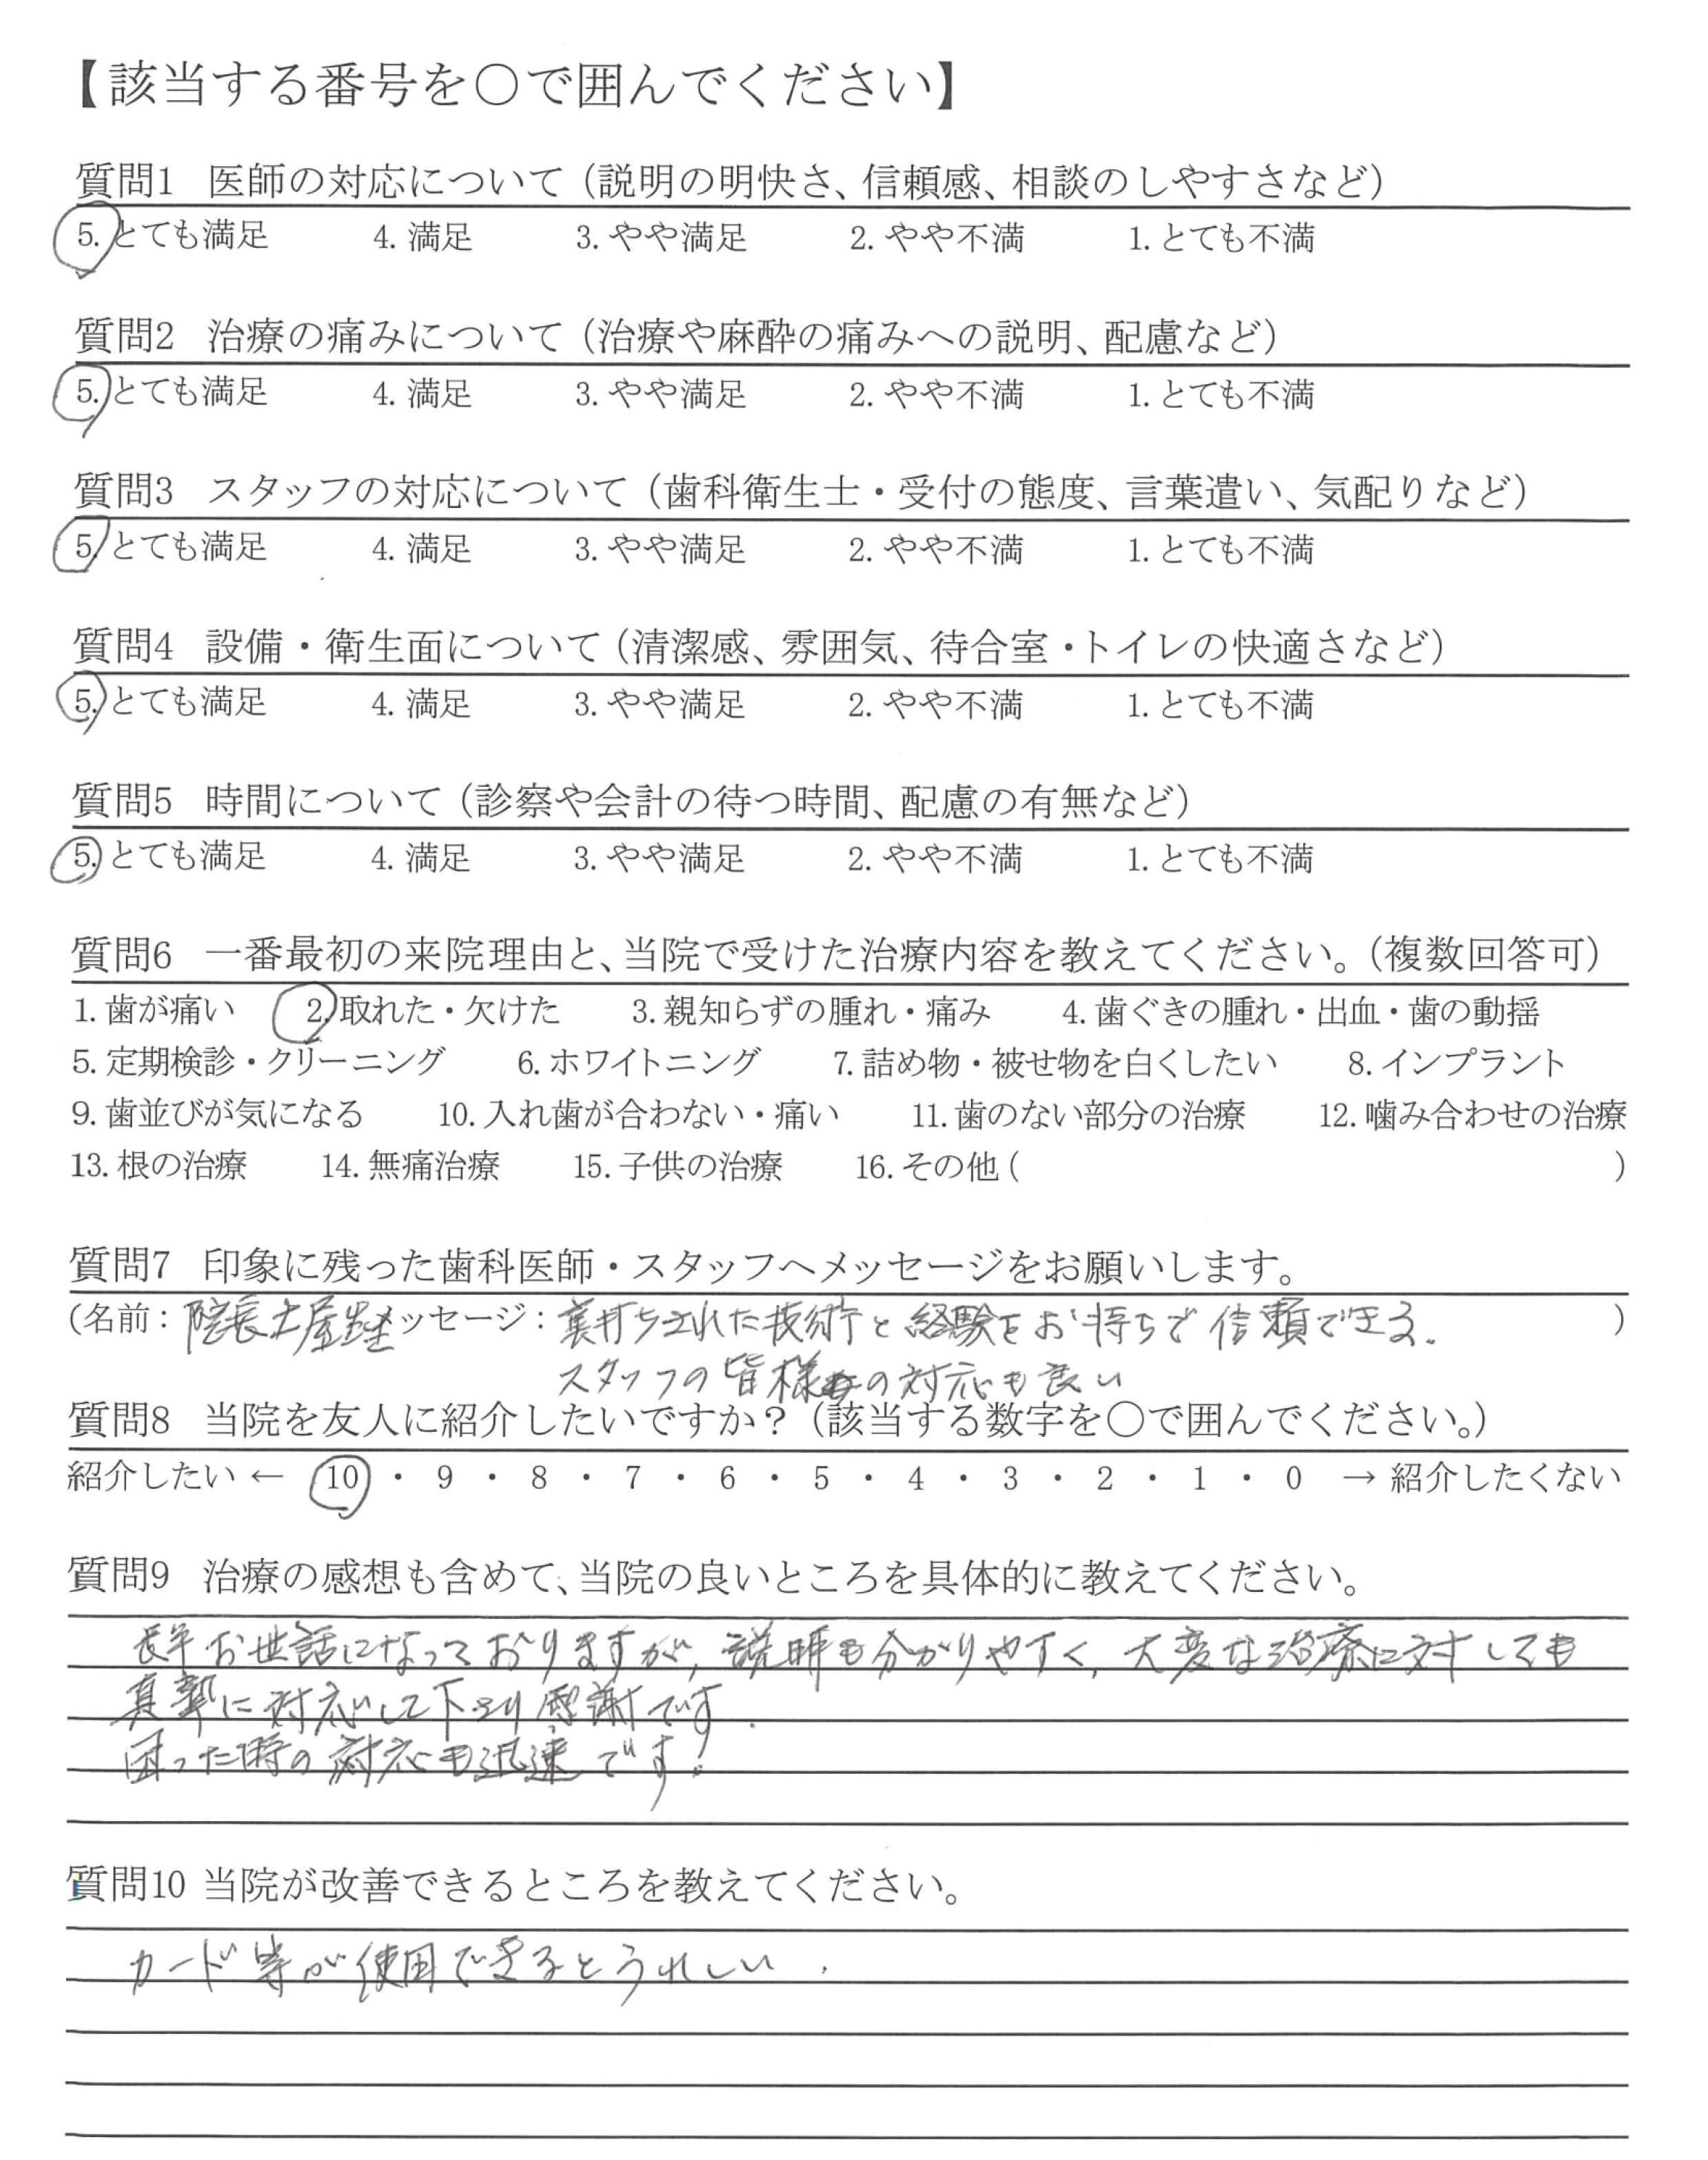 【該当する番号を〇で囲んでください】
質問1 医師の対応について（説明の明快さ、信頼感、相談のしやすさなど）
5. とても満足 4. 満足 3. やや満足 2. やや不満 1. とても不満
質問2 治療の痛みについて（治療や麻酔の痛みへの説明、配慮など）
5. とても満足 4. 満足 3. やや満足 2. やや不満 1. とても不満
質問3 スタッフの対応について（歯科衛生士・受付の態度、言葉遣い、気配りなど）
5. とても満足 4. 満足 3. やや満足 2. やや不満 1. とても不満
質問4 設備・衛生面について（清潔感、雰囲気、待合室・トイレの快適さなど）
5. とても満足 4. 満足 3. やや満足 2. やや不満 1. とても不満
質問5 時間について（診察や会計の待つ時間、配慮の有無など）
5. とても満足 4. 満足 3. やや満足 2. やや不満 1. とても不満
質問6 一番最初の来院理由と、当院で受けた治療内容を教えてください。（複数回答可）
1. 歯が痛い 2. 取れた・欠けた 3. 親知らずの腫れ・痛み 4. 歯ぐきの腫れ・出血・歯の動揺
5. 定期検診・クリーニング 6. ホワイトニング 7. 詰め物・被せ物を白くしたい 8. インプラント
9. 歯並びが気になる 10. 入れ歯が合わない・痛い 11. 歯のない部分の治療 12. 噛み合わせの治療
13. 根の治療 14. 無痛治療 15. 子供の治療 16. その他 ( )
質問7 印象に残った歯科医師・スタッフへメッセージをお願いします。
(名前： 院長土屋 メッセージ： 裏打ちされた技術と経験をお持ちで信頼できる。 )
スタッフの皆様の対応も良い
質問8 当院を友人に紹介したいですか？（該当する数字を〇で囲んでください。）
紹介したい ← 10 ・ 9 ・ 8 ・ 7 ・ 6 ・ 5 ・ 4 ・ 3 ・ 2 ・ 1 ・ 0 → 紹介したくない
質問9 治療の感想も含めて、当院の良いところを具体的に教えてください。
長年お世話になっておりますが、説明も分かりやすく、大変な治療に対しても
真摯に対応して下さり感謝です。
困った時の対応も迅速です。
質問10 当院が改善できるところを教えてください。
カード等が使用できるとうれしい。